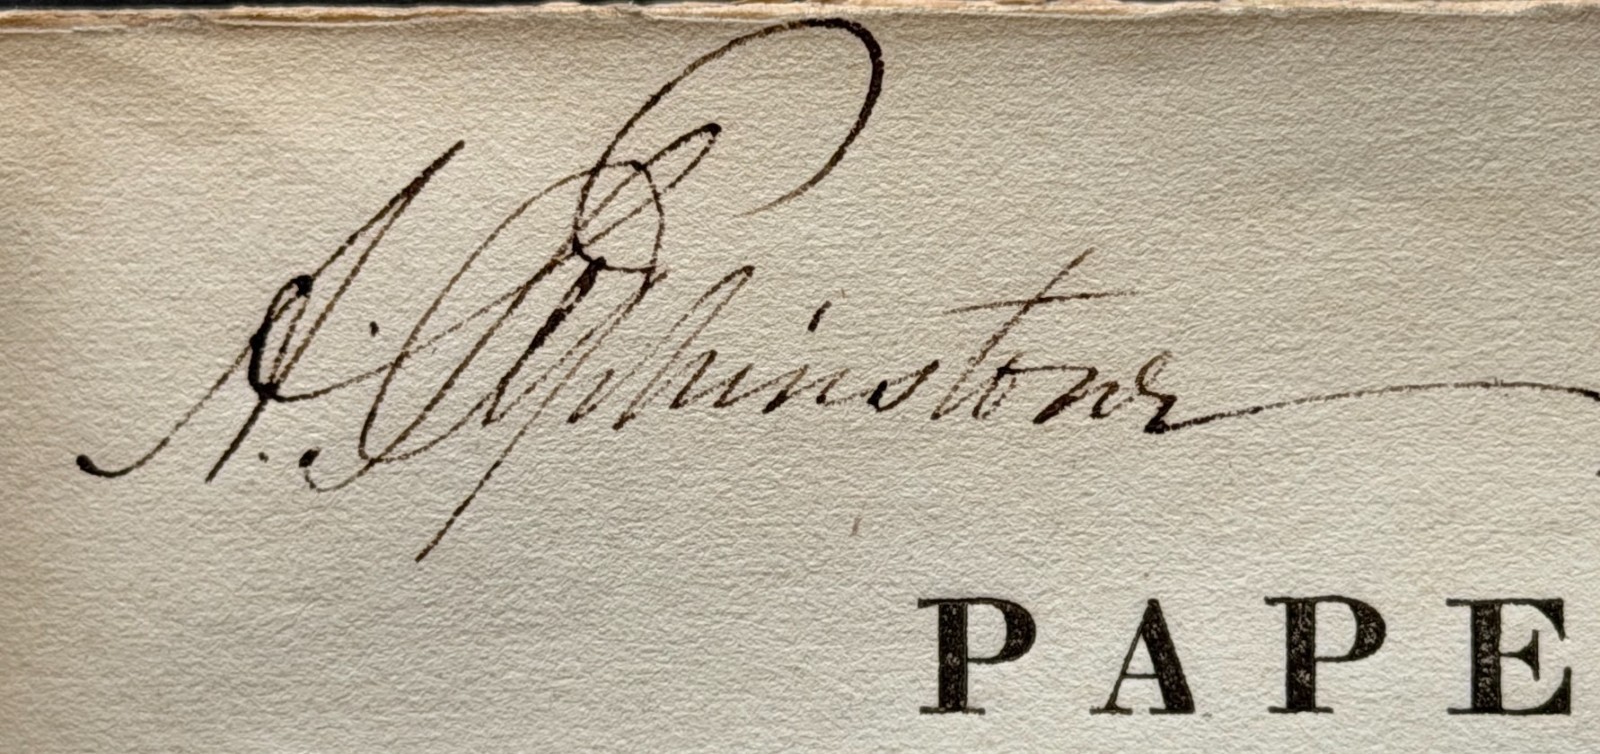 A. Elphinstone
PAPE